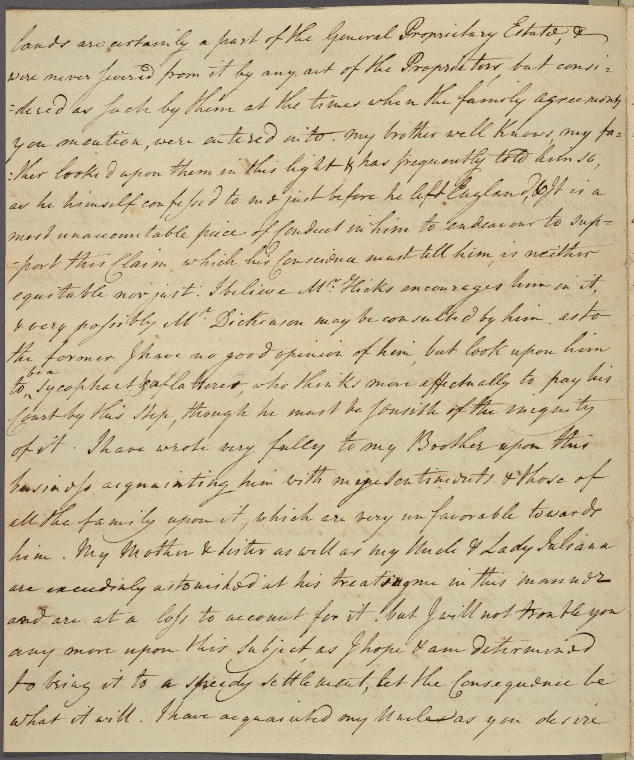 lands are certainly a part of the General Proprietary Estate, &
were never severed from it by any act of the Proprietors, but consi=
=dered as such by them at the times when the family agreements
you mention, were entered into. my brother well knows, my fa=
:ther looked upon them in this light & has frequently told him so,
as he himself confessed to me just before he left England, & It is a
most unaccountable piece of Conduct in him to endeavour to sup=
=port this Claim, which his Conscience must tell him, is neither
equitable nor just. I believe Mr. Hicks encourages him in it,
& very possibly Mr. Dickenson may be consulted by him. as to
the former I have no good opinion of him, but look upon him
to be a Sycophant & a flatterer who thinks more effectually to pay his
Court by this Step, though he must be sensible of the iniquity
of it. I have wrote very fully to my Brother upon this
business acquainting him with my sentiments & those of
all the family upon it, which are very unfavorable towards
him. My Mother & Sister as well as my Uncle & Lady Juliana
are exceedinly astonished at his treating me in this manner
and are at a loss to account for it. but I will not trouble you
any more upon this subject, as I hope & am determined
to bring it to a speedy settlement, let the Consequence be
what it will. I have acquainted my Uncle as you desire